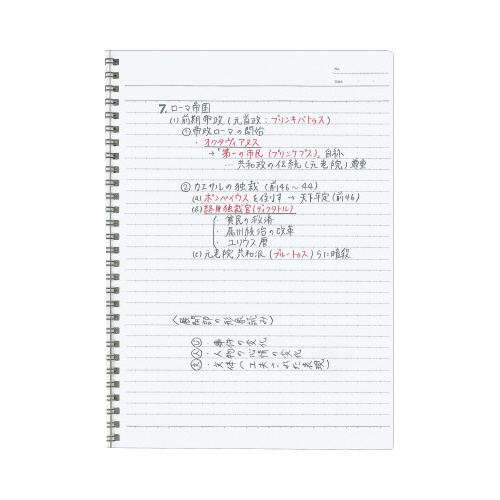 No.
Date
7. ローマ帝国
(1) 前期帝政 (元首政：プリンキパトゥス)
① 帝政ローマの開始
・オクタヴィアヌス
→「第一の市民 (プリンケプス)」自称
… 共和政の伝統 (元老院) 尊重
② カエサルの独裁 (前46〜44)
(a) ポンペイウスを倒す → 天下平定 (前46)
(b) 終身独裁官 (ディクタトル)
・貧民の救済
・属州統治の改革
・ユリウス暦
(c) 元老院共和派 (ブルートゥス) らに暗殺
〈展開部の形象読み〉
事・事件の変化
人・人物の心情の変化
文・文体 (工夫された表現)